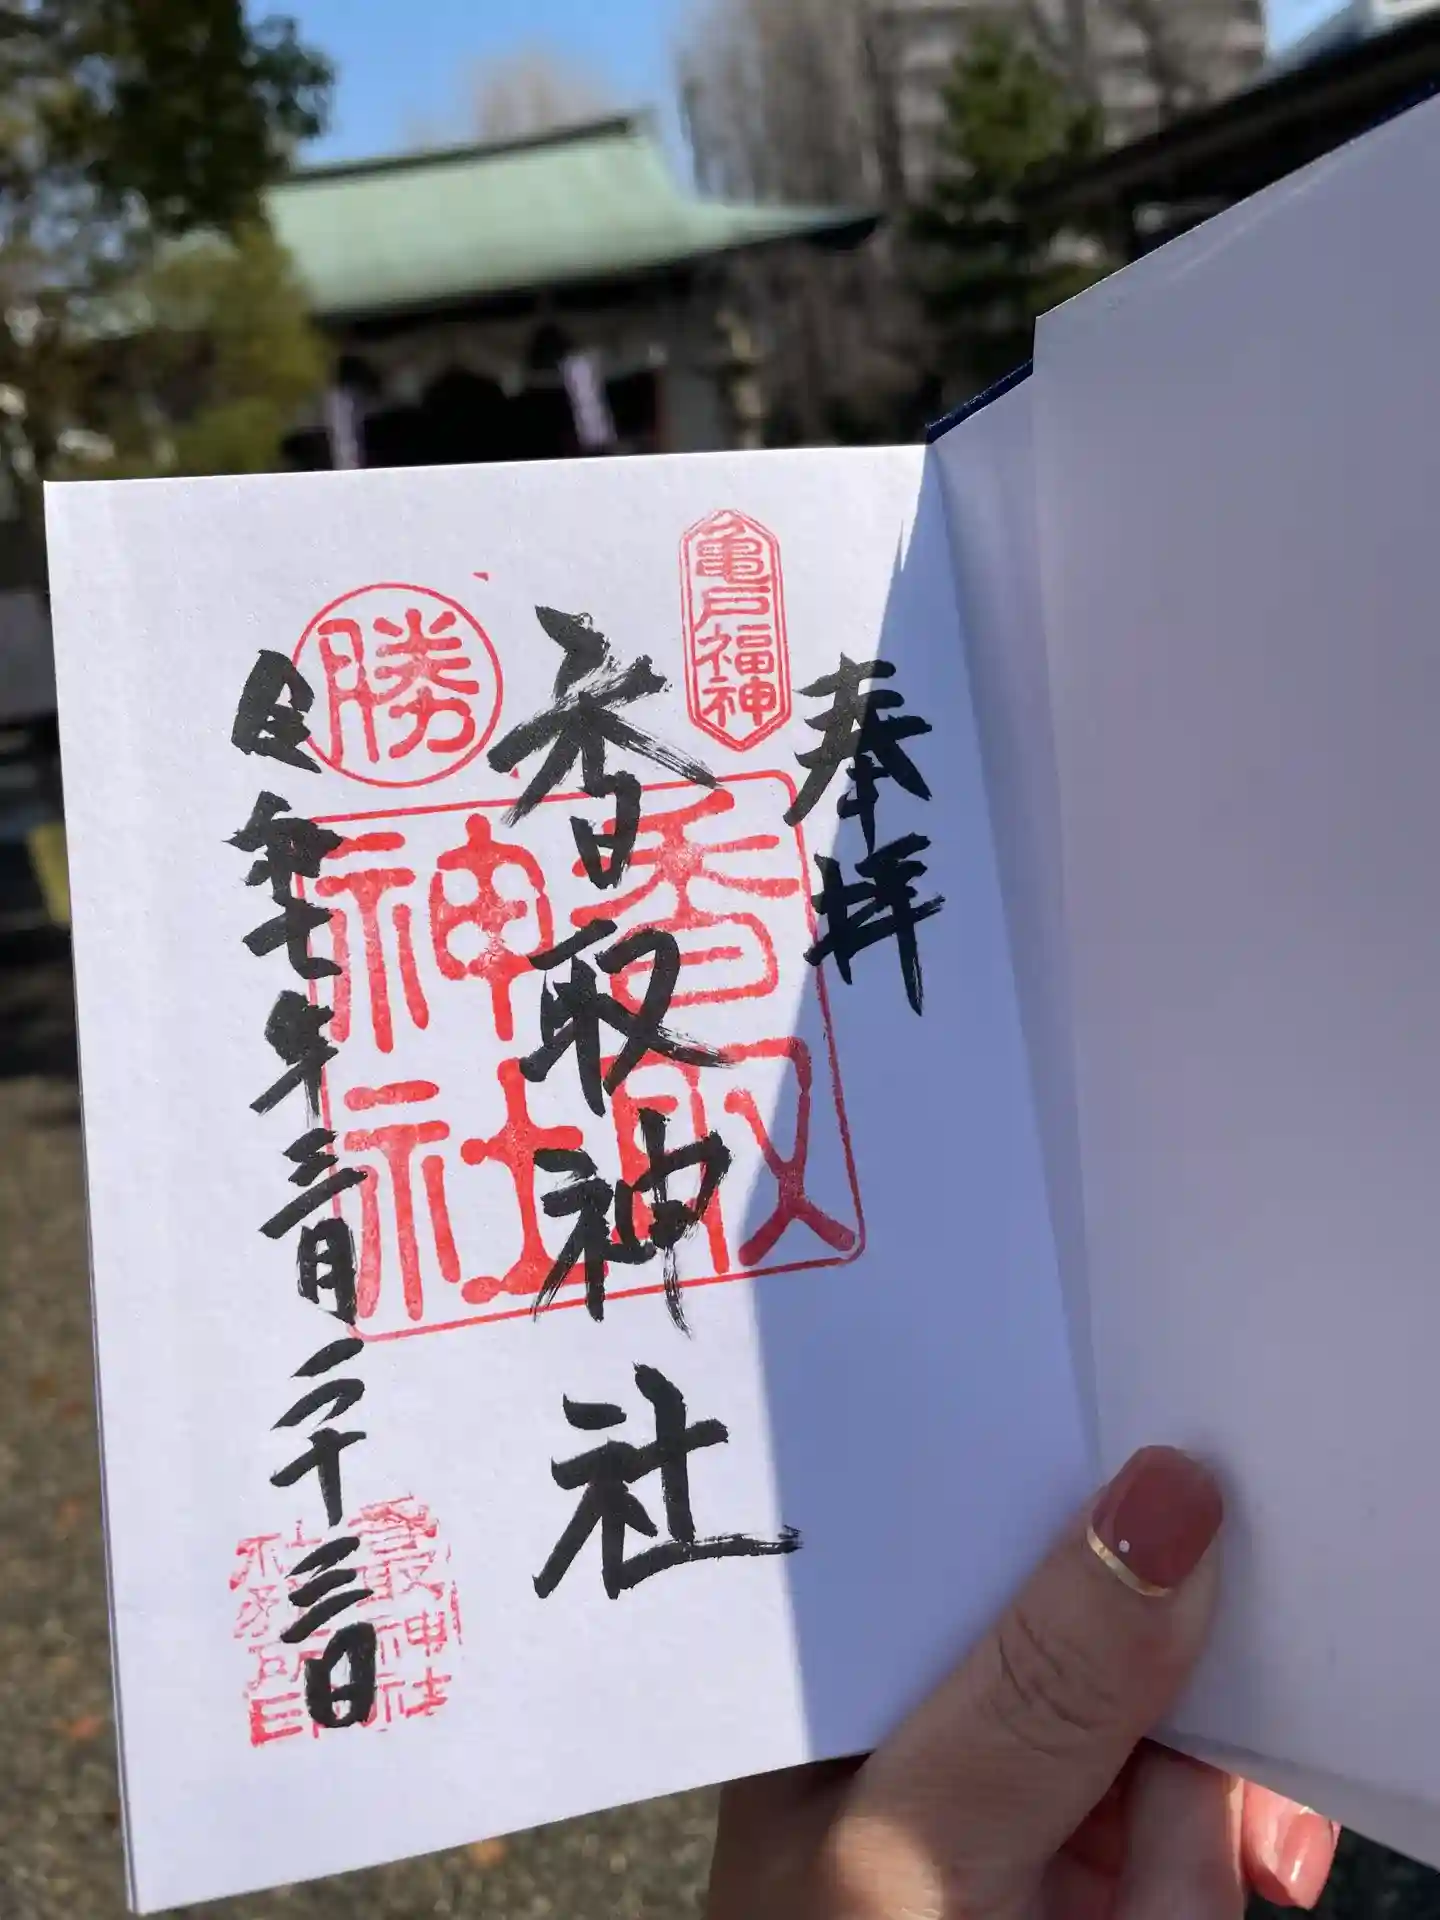 奉拝
亀戸福神
香取神社
香取
神社
勝
令和七年三月二十三日
香取神社
社務所印